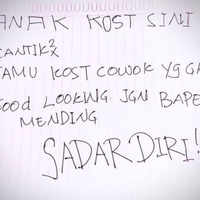 ANAK KOST SINI
CANTIK2
TAMU KOST COWOK Yg GA
GOOD LOOKING JGN BAPE
MENDING
SADAR DIRI!